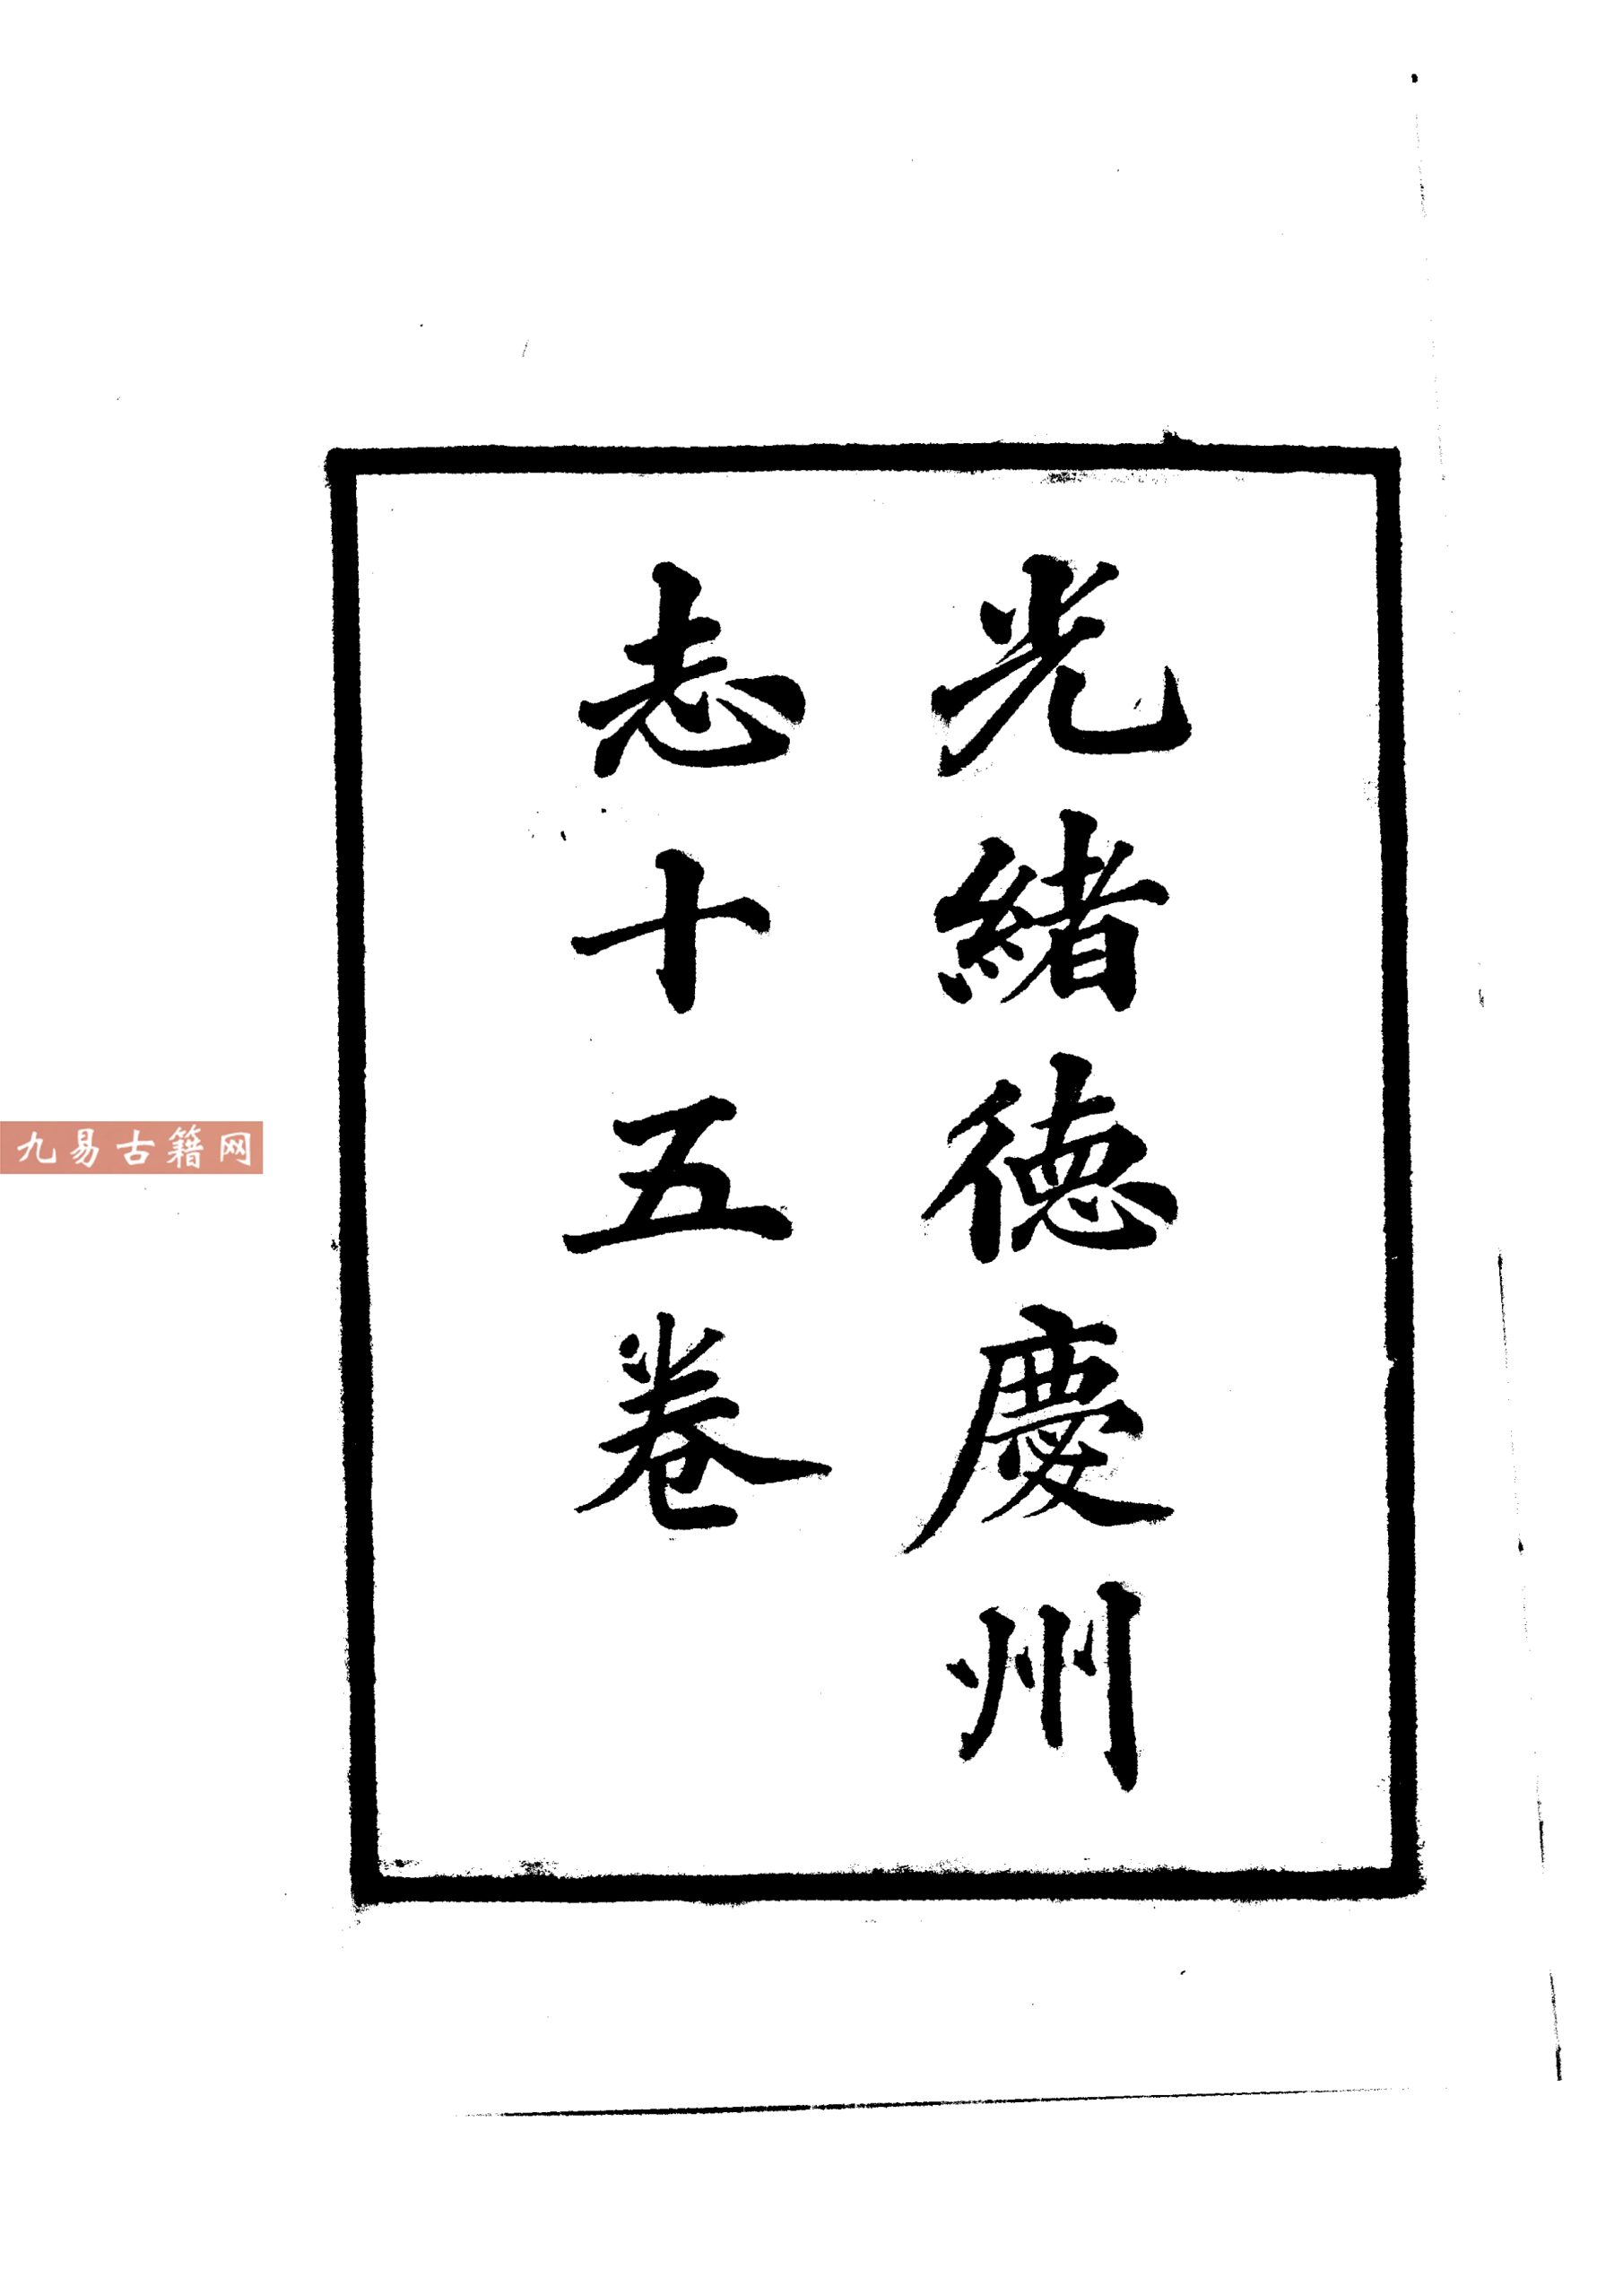 光緒德慶州
志十五卷
九易古籍网